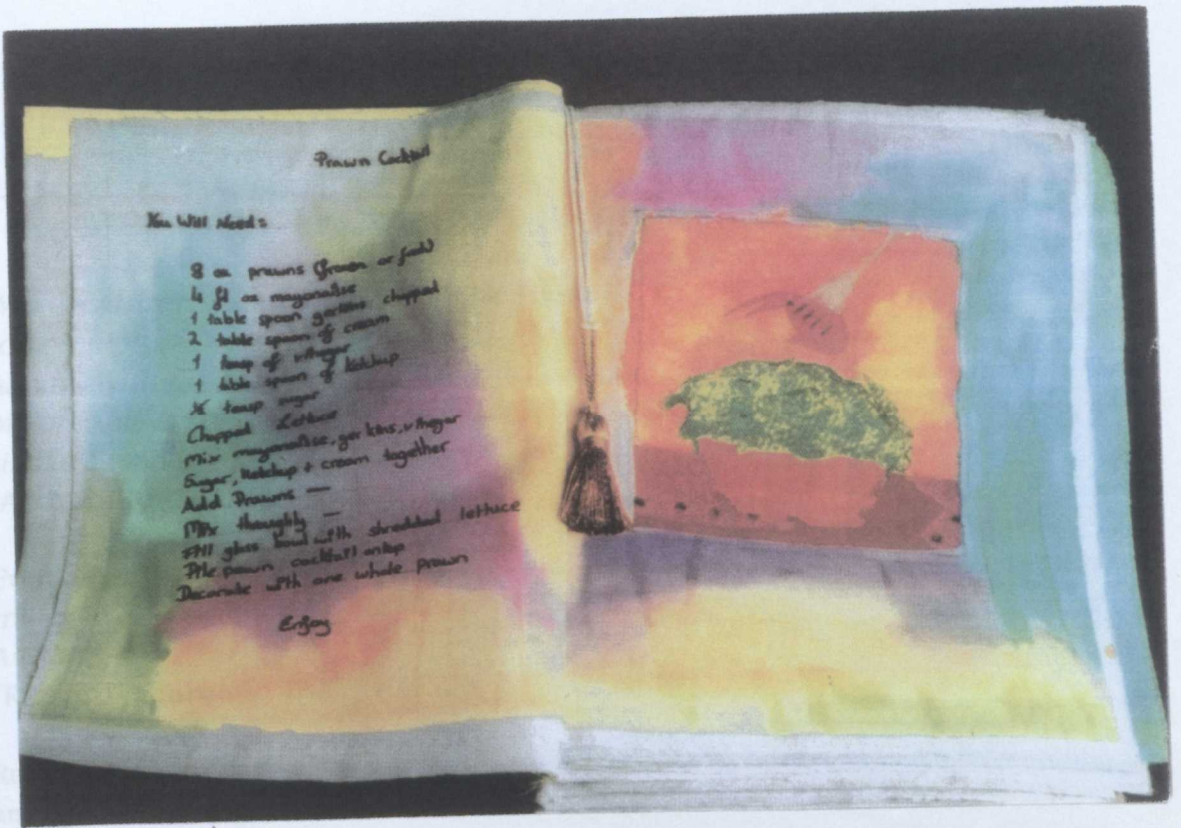 Prawn Cocktail
You Will Need:
8 oz prawns (frozen or fresh)
4 fl oz mayonaise
1 table spoon gerkins chopped
2 table spoon of cream
1 teasp of vinegar
1 table spoon of ketchup
½ teasp sugar
Chopped Lettuce
Mix mayonaise, gerkins, vinegar
Sugar, Ketchup + cream together
Add Prawns —
Mix thoughly —
Fill glass bowl with shredded lettuce
Pile prawn cocktail ontop
Decorate with one whole prawn
Enjoy